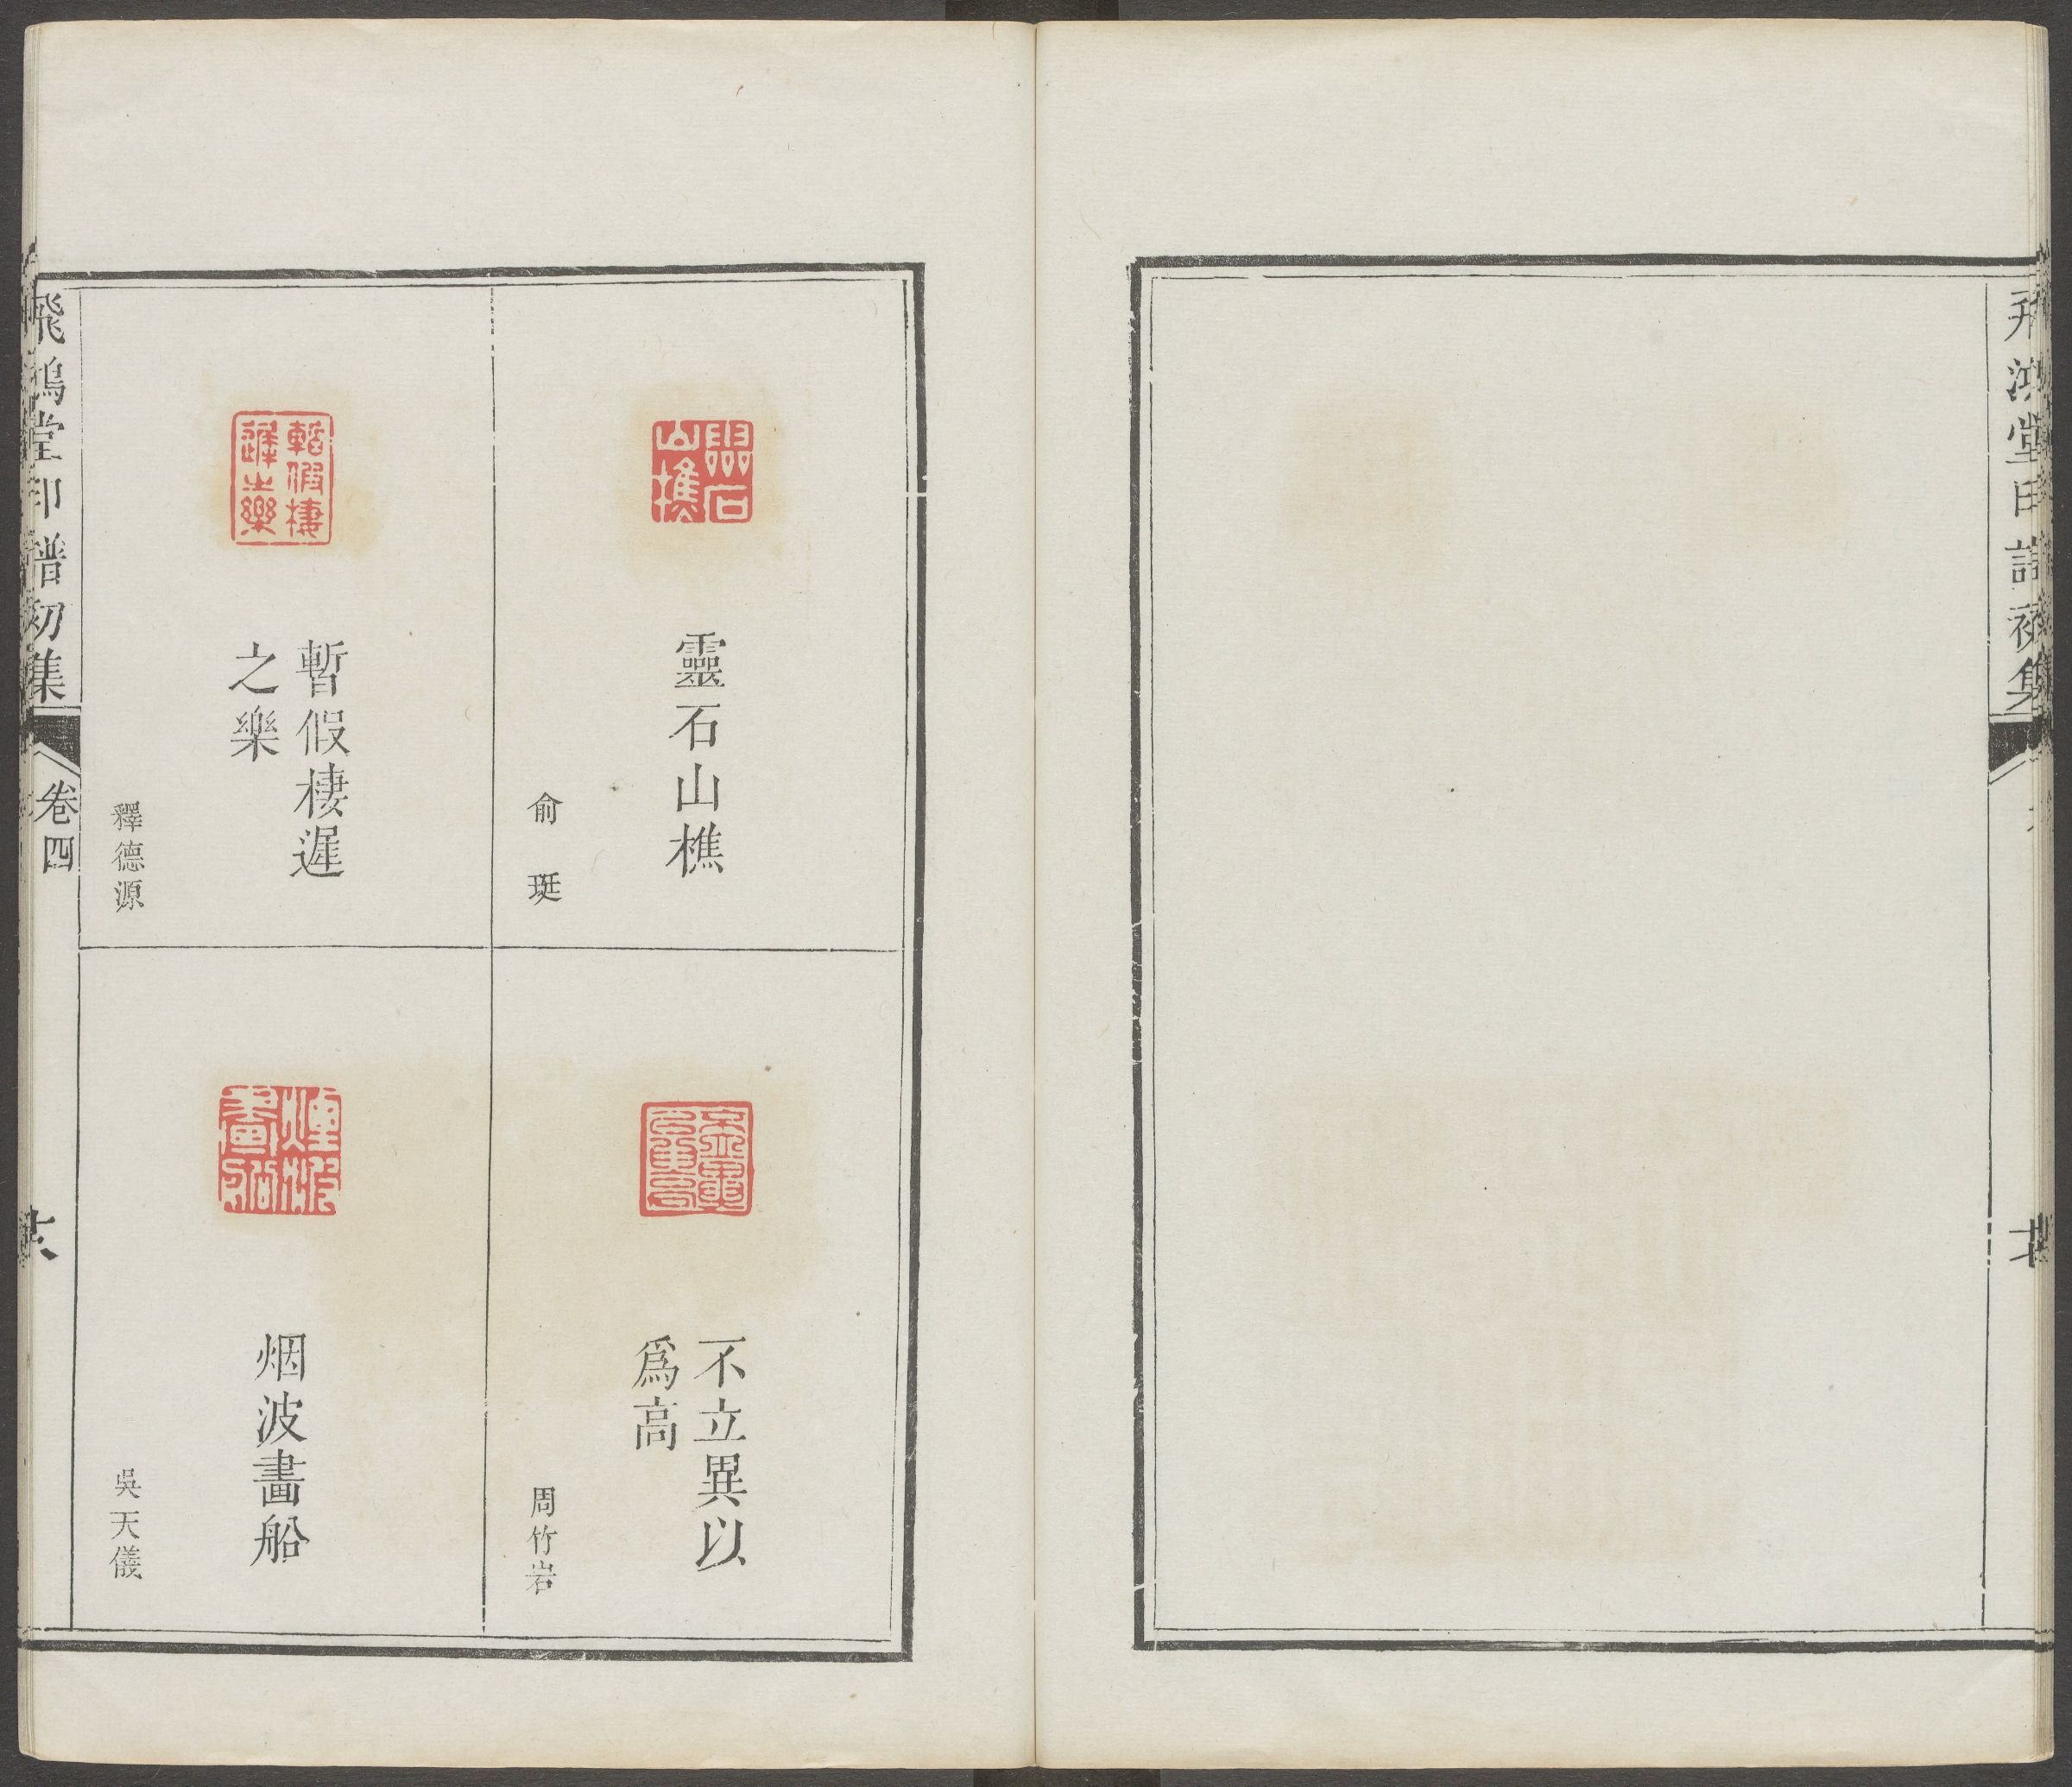 飛鴻堂印譜初集
靈石山樵
俞珽
不立異以
爲高
周竹岩
暫假棲遲
之樂
釋德源
烟波畫船
吳天儀
飛鴻堂印譜初集
卷四